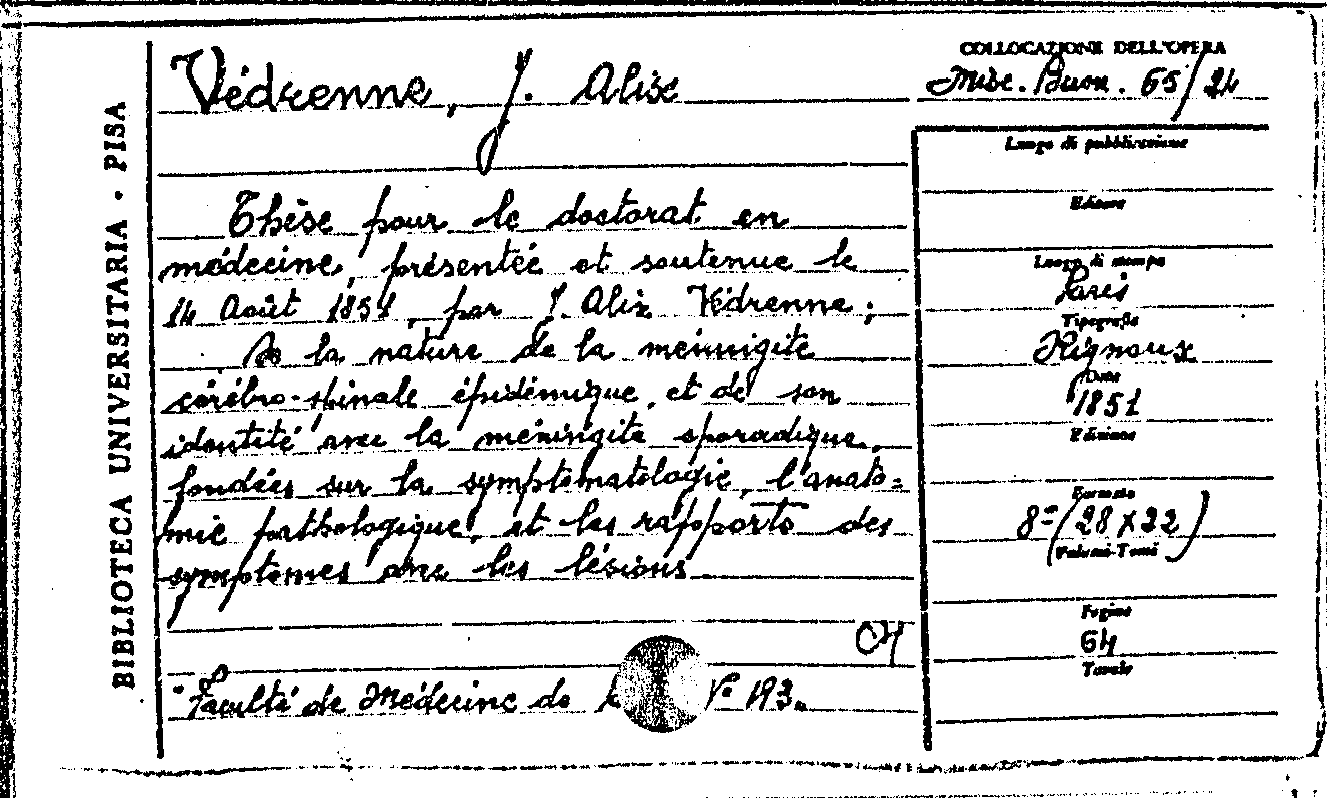 BIBLIOTECA UNIVERSITARIA · PISA
Védrenne, J. Alix
Thèse pour le doctorat en
médecine, présentée et soutenue le
14 Août 1851, par J. Alix Védrenne;
De la nature de la méningite
cérébro-spinale épidémique, et de son
identité avec la méningite sporadique,
fondées sur la symptomatologie, l'anato=
mie pathologique, et les rapports des
symptomes avec les lésions
04
"Faculté de Médecine de N° 193„
COLLOCAZIONE DELL'OPERA
Misc. Buon. 65/24
Luogo di pubblicazione
Editore
Luogo di stampa
Paris
Tipografia
Rignoux
Data
1851
Edizione
Formato
8= (28 x 22)
Volumi-Tomi
Pagine
64
Tavole